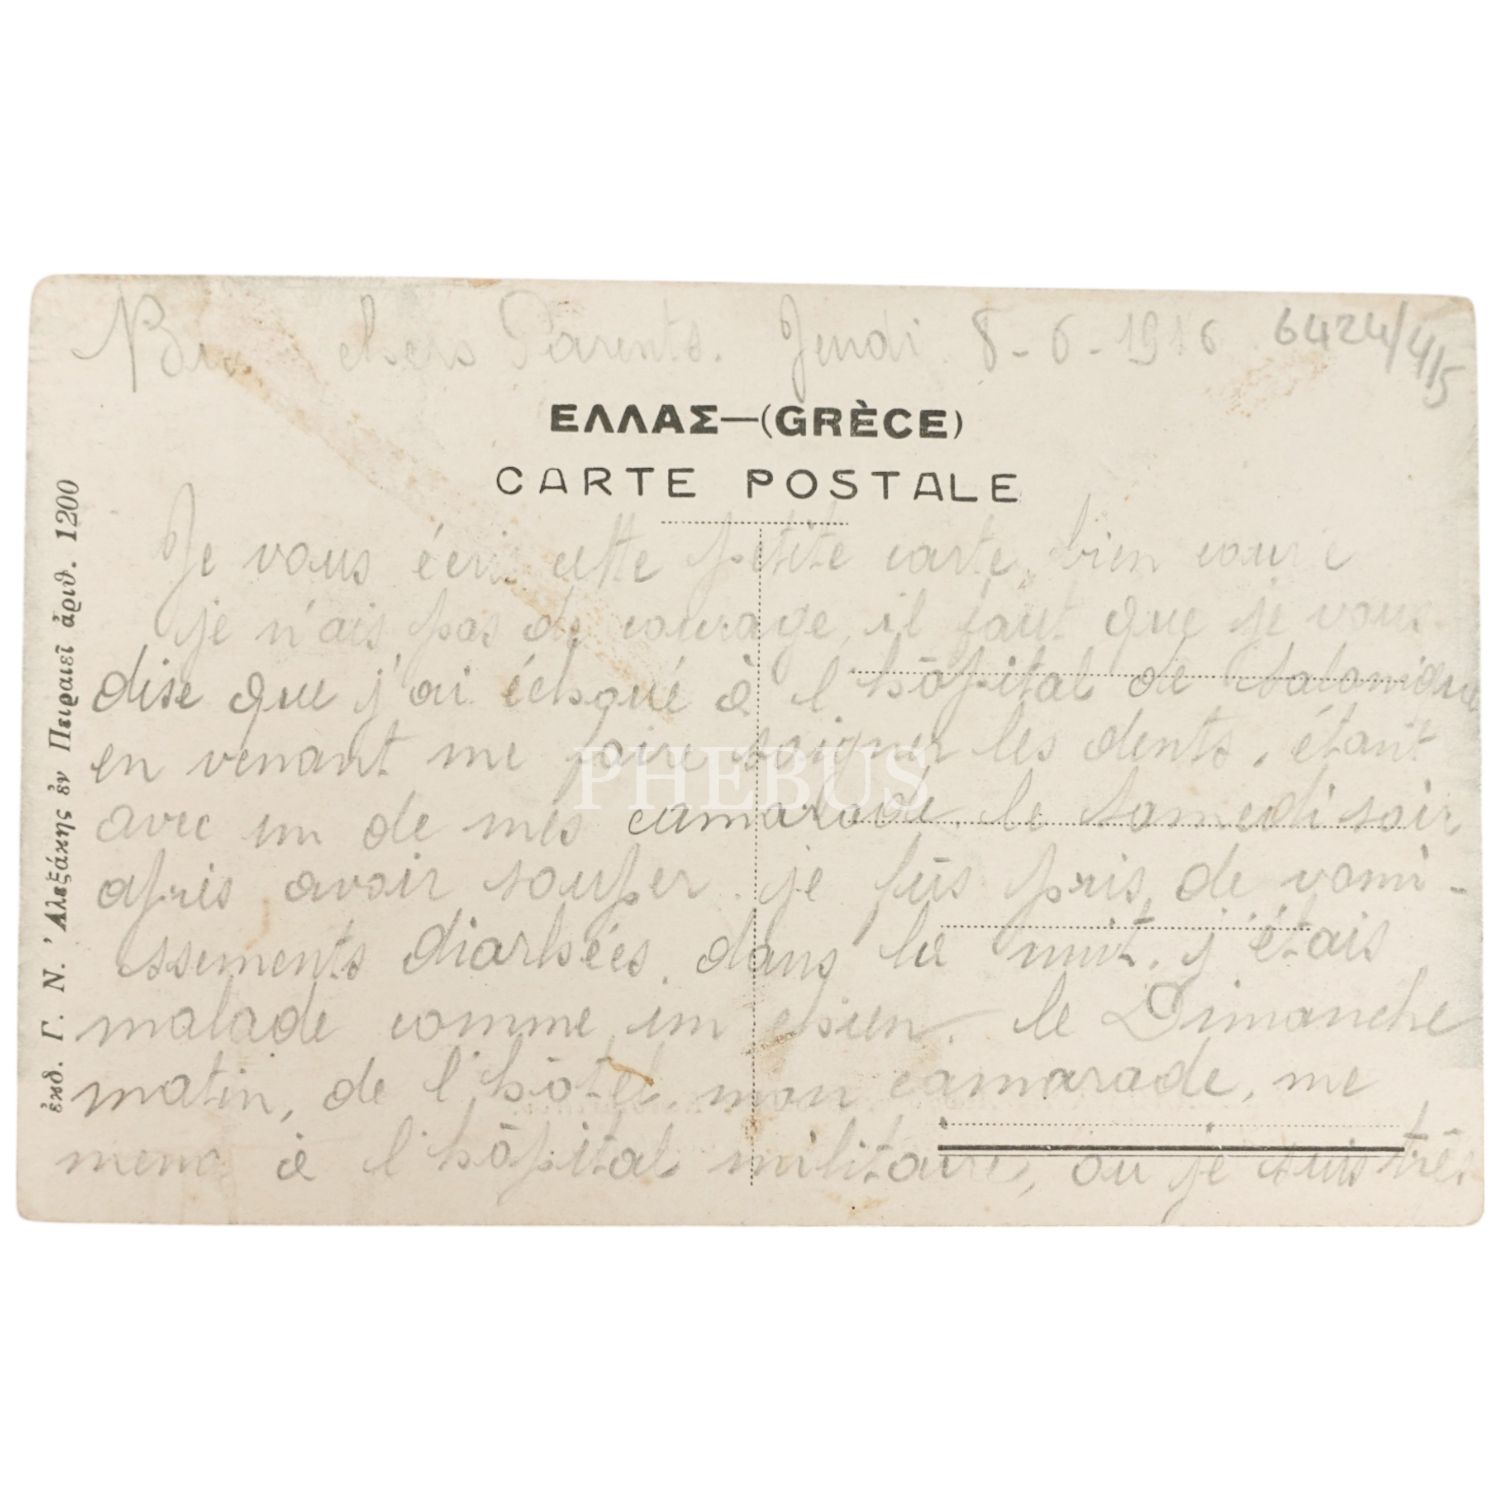 Bien chers Parents. Jeudi 8-6-1916 6424/4/5
ΕΛΛΑΣ—(GRÈCE)
CARTE POSTALE
Je vous écris cette petite carte, bien
je n'ais pas de courage, il faut que je vous
dise que j'ai échoué à l'hôpital de Salonique
en venant me faire soigner les dents, étant
avec un de mes camarade. le samedi soir
après avoir souper. je fûs pris de vomi-
ssements diarhées. dans la nuit, j'étais
malade comme un chien. le Dimanche
matin, de l'hôtel mon camarade, me
mena à l'hôpital militaire, ou je suis très
ἐκδ. Γ. Ν. Ἀλεξάκης ἐν Πειραιεῖ ἀριθ. 1200
PHEBUS